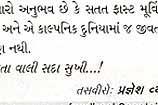 ારો અનુભવ છે કે સતત ફાસ્ટ મૂવિ
અને એ કાલ્પનિક દુનિયામાં જ જીવત
ણ નથી.
તા વાલી સદા સુખી...!
તસવીરો: પ્રજ્ઞેશ વ્ય